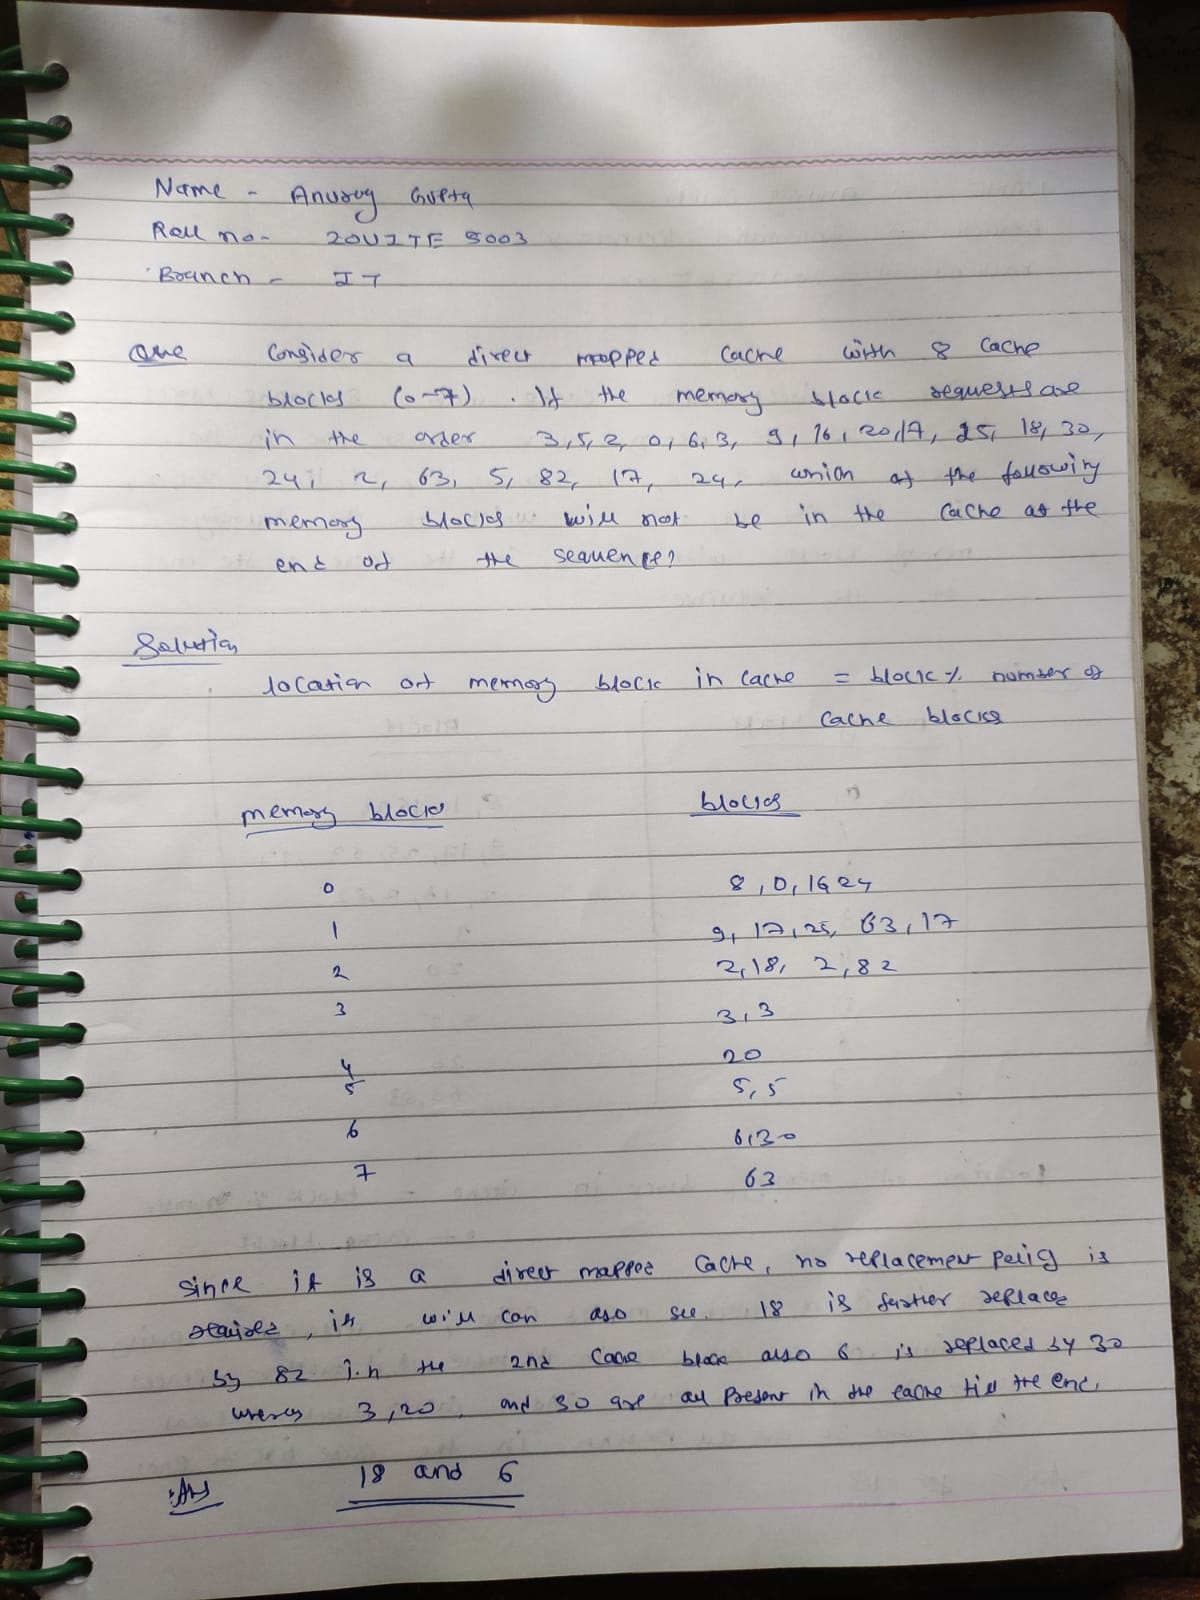 Name - Anurag Gupta
Roll no- 20UITE 9003
Branch - IT
Que Consider a direct mapped cache with 8 cache
blocks (0-7). If the memory block requests are
in the order 3,5,2,0,6,3, 9,16,20,17, 25, 18, 30,
24, 2, 63, 5, 82, 17, 24, which of the following
memory blocks will not be in the cache at the
end of the sequence?
Solution
location of memory block in cache = block % number of
cache blocks
memory blocks blocks
0 8,0,16 24
1 9,17,25, 63,17
2 2,18, 2,82
3 3,3
4 20
5 5,5
6 6,30
7 63
Since it is a direct mapped cache, no replacement is
, it will can also see. 18 is further replace
by 82 in the 2nd cache block also 6 is replaced by 30
3,20, and 30 are all present in the cache till the end.
Ans 18 and 6